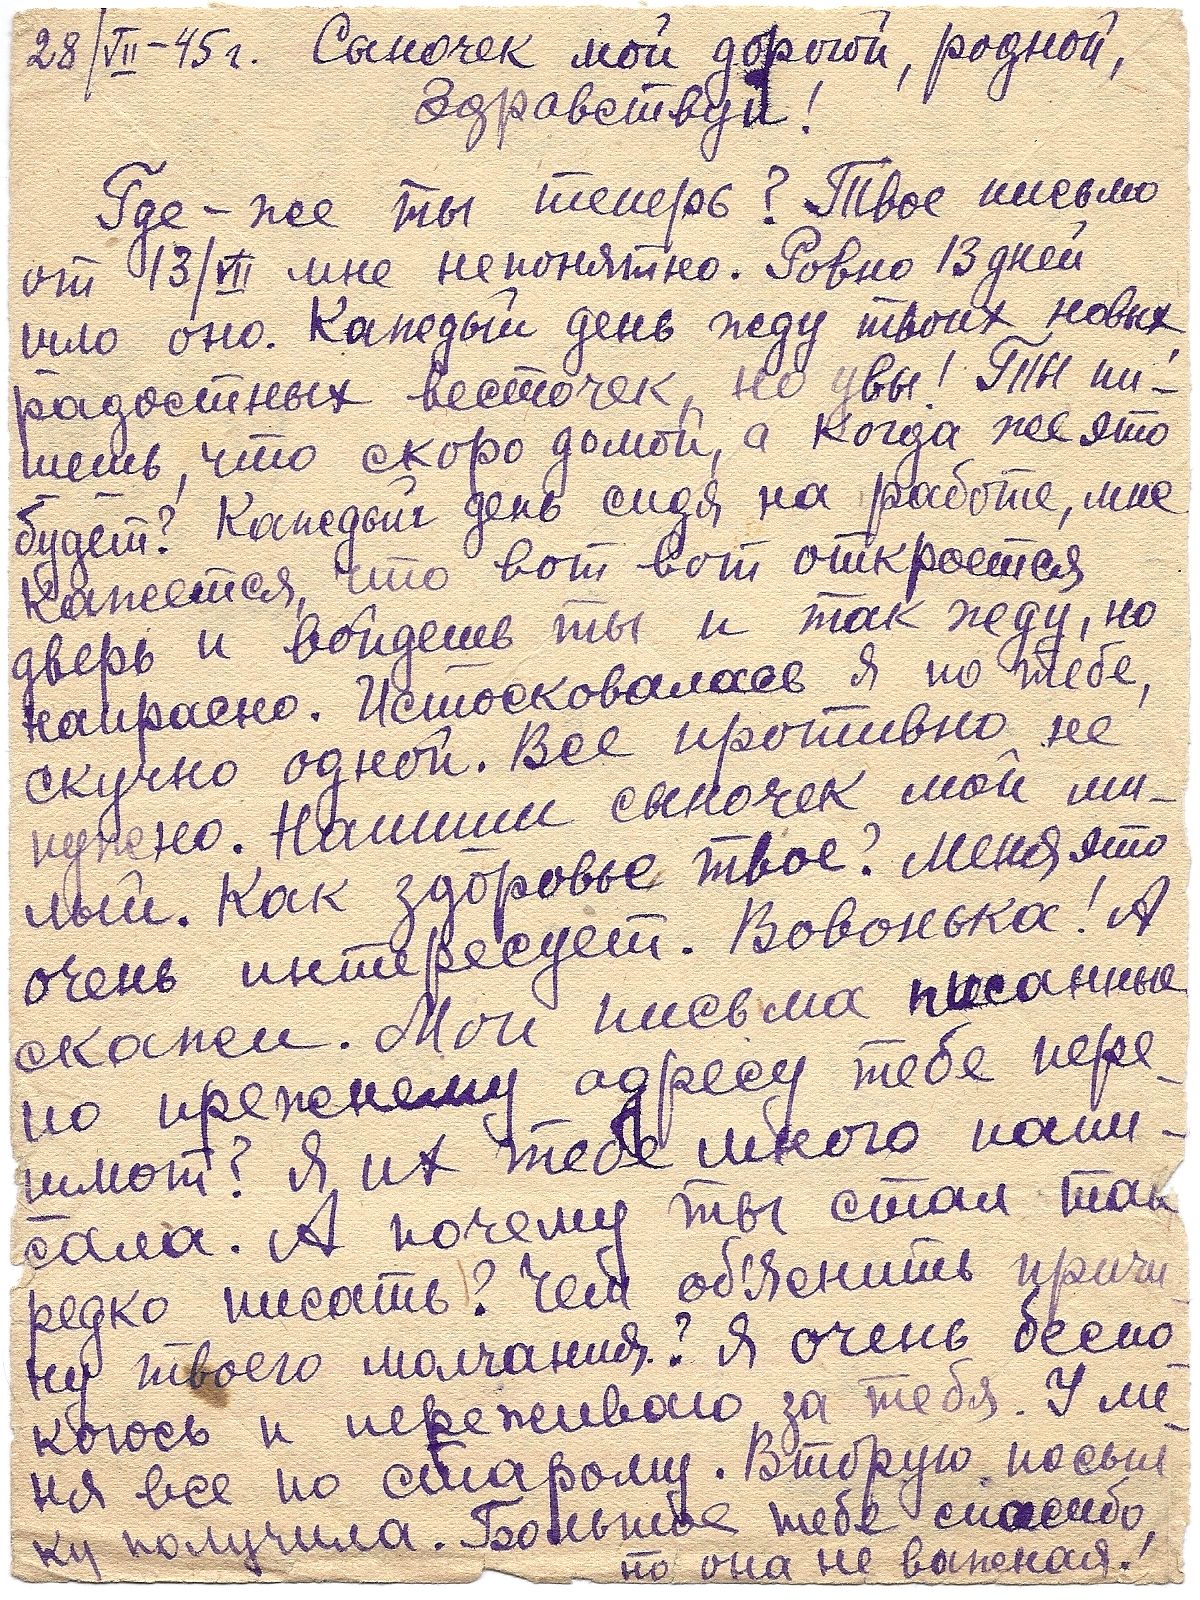 28/VII-45г. Сыночек мой дорогой, родной,
Здравствуй!
Где-же ты теперь? Твое письмо
от 13/VII мне непонятно. Ровно 13 дней
шло оно. Каждый день жду твоих новых
радостных весточек, но увы! Ты пи-
шешь, что скоро домой, а когда же это
будет? Каждый день сидя на работе, мне
кажется, что вот вот откроется
дверь и войдешь ты и так жду, но
напрасно. Истосковалась я по тебе,
скучно одной. Все противно не
нужно. Напиши сыночек мой ми-
лый. Как здоровье твое? Меня это
очень интересует. Вовонька! А
скажи. Мои письма писанные
по прежнему адресу тебе пере-
шлют? Я их тебе много напи-
сала. А почему ты стал так
редко писать? Чем об'яснить причи
ну твоего молчания? Я очень беспо
коюсь и переживаю за тебя. У ме-
ня все по старому. Вторую посыл
ку получила. Большое тебе спасибо,
но она не важная!